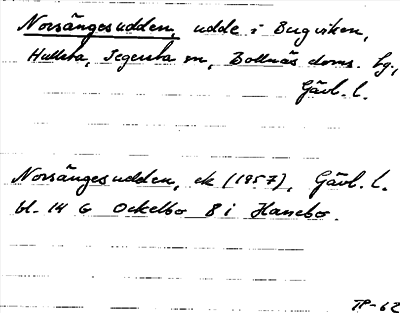 Norsängesudden, udde i Bergviken,
Hullsta, Segersta sn, Bollnäs doms. hg.,
Gävl. l.
Norsängesudden, ek (1957), Gävl. l.
bl. 14 G Ockelbo 8 i Hanebo.
TP-62